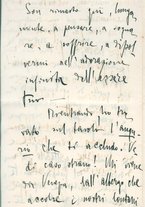 Son rimasto qui lunga
mente, a pensare, a sogna
re, a soffrire, a dispe
rarmi nell'adorazione
infinita dell'essere
tuo.
Rientrando ho tro
vato sul tavolo l'augu
rio che ti accludo. Ve
di caso strano! Mi viene
da Venezia, dall'albergo che
accolse i nostri lontani